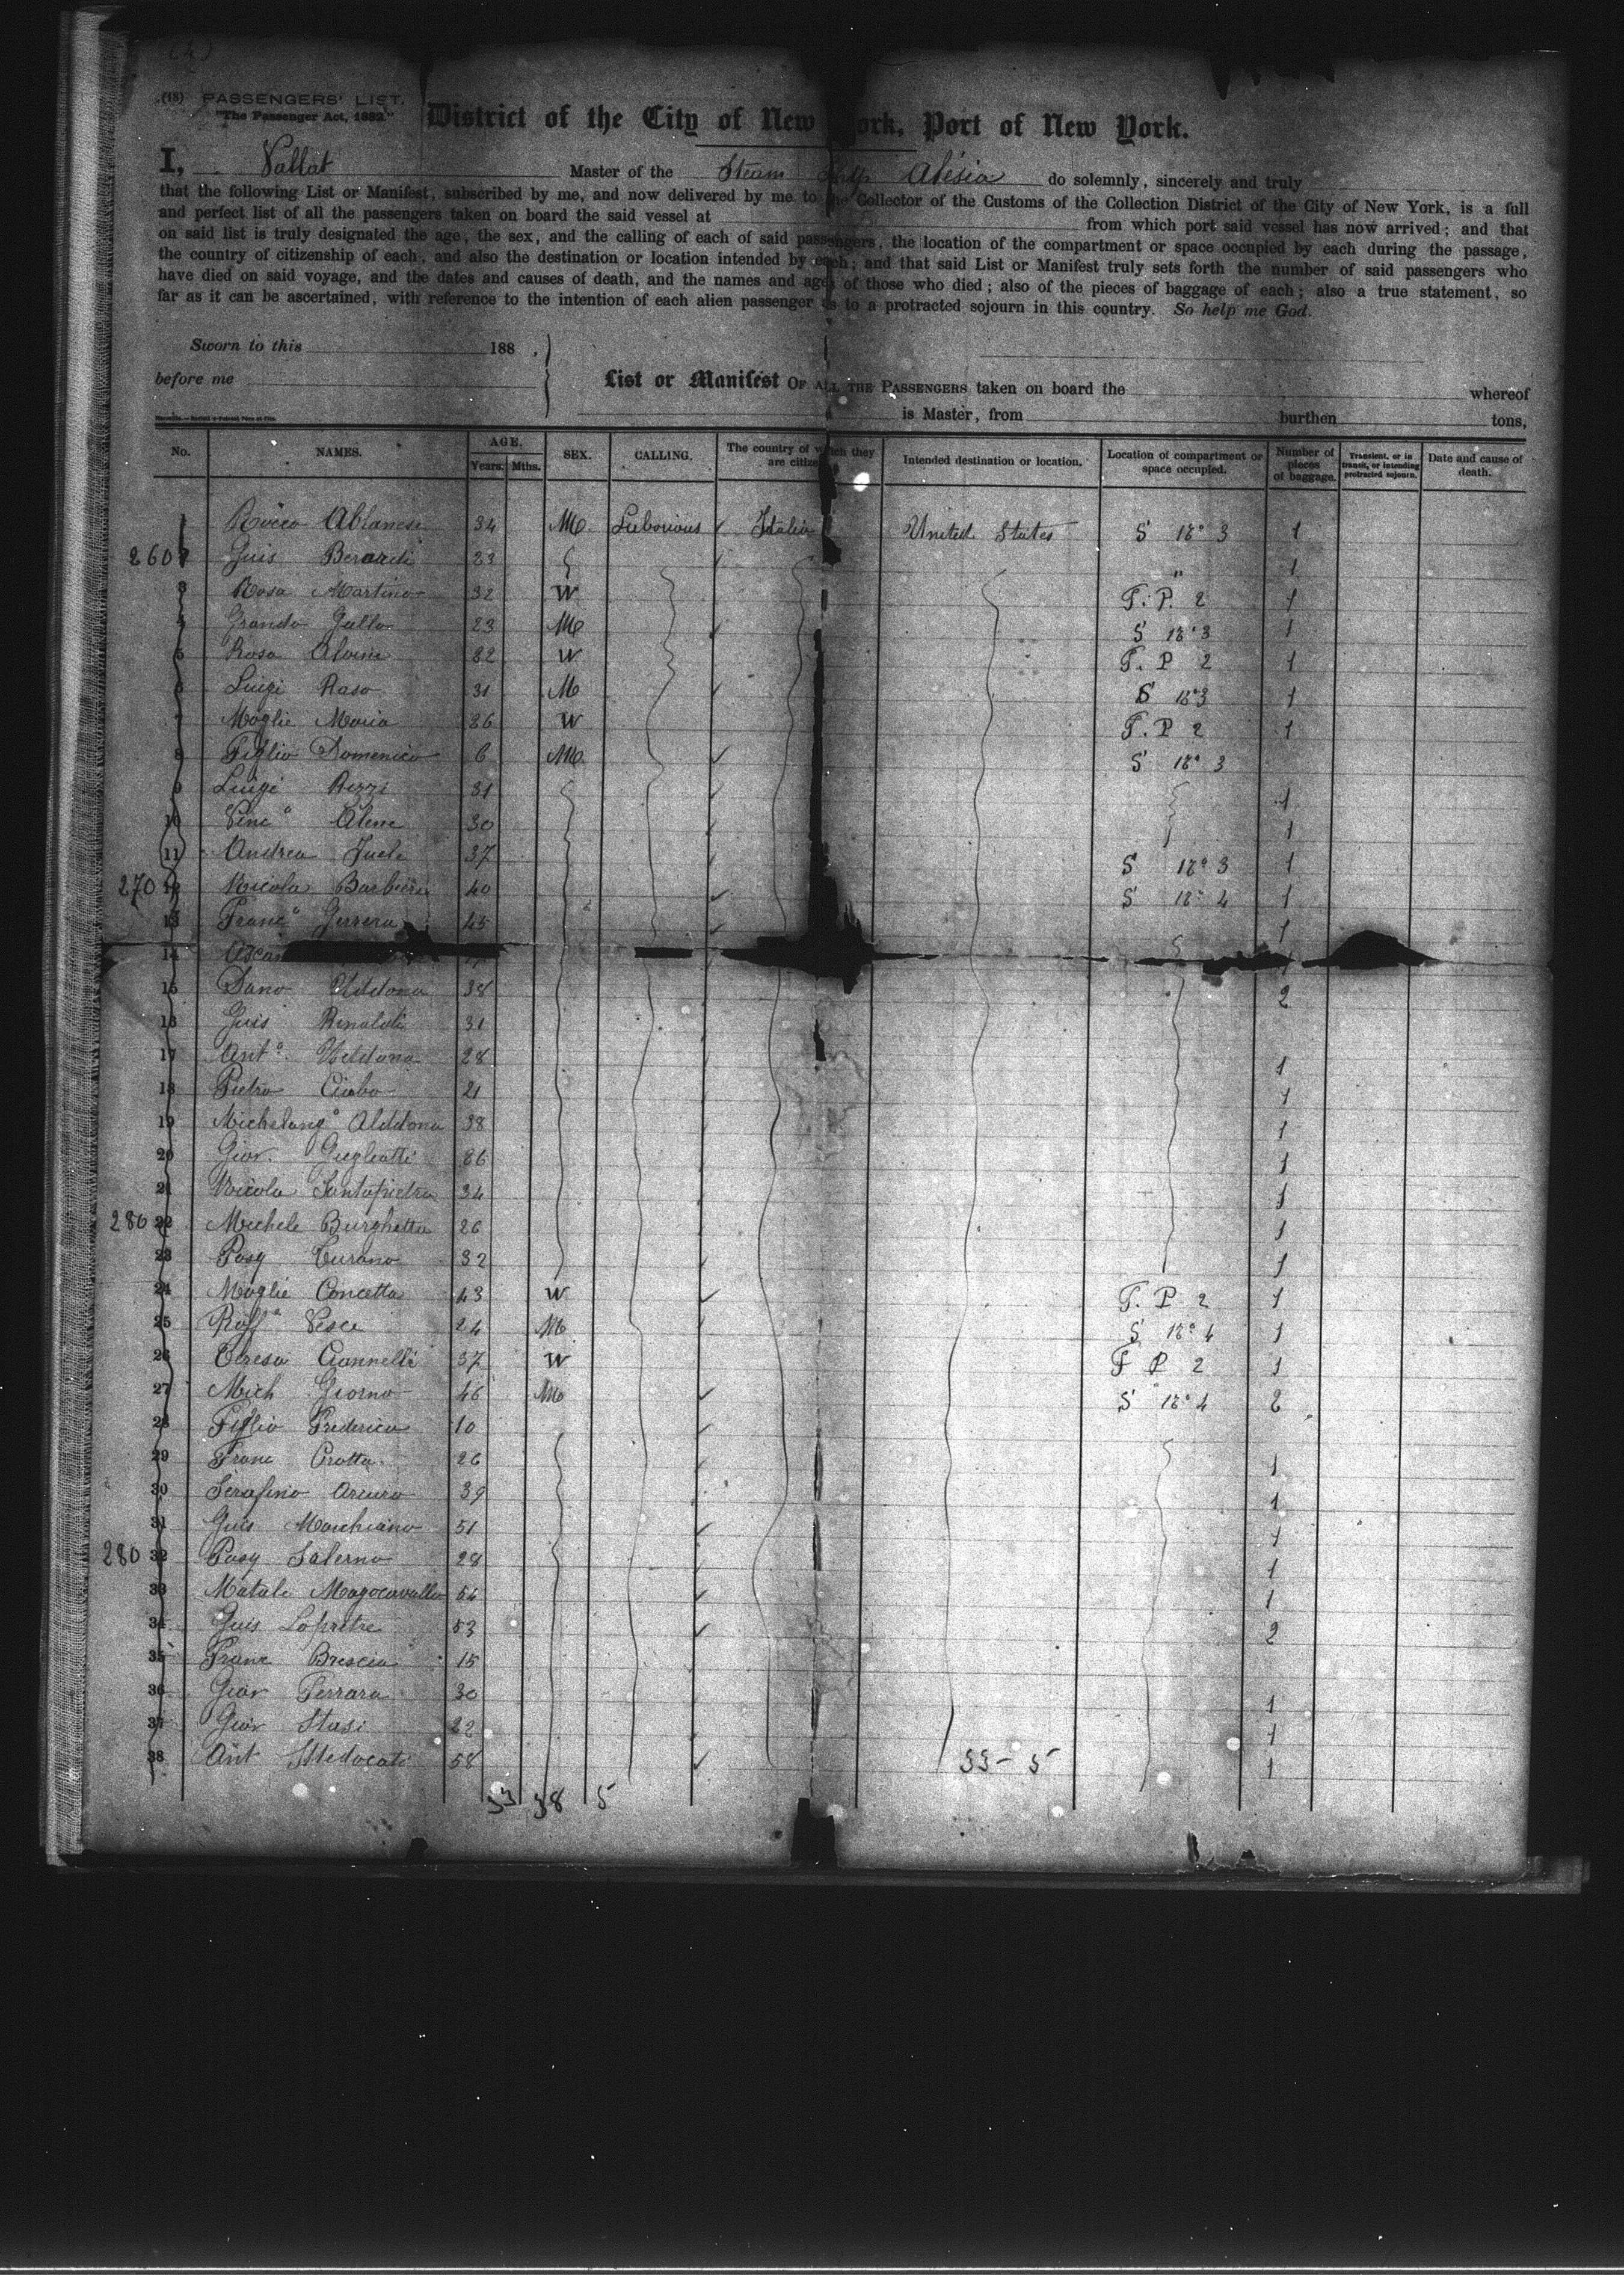 (4)
(18) PASSENGERS' LIST.
"The Passenger Act, 1882."
District of the City of New York, Port of New York.
I, Vallat Master of the Steam Ship Alésia do solemnly, sincerely and truly
that the following List or Manifest, subscribed by me, and now delivered by me to the Collector of the Customs of the Collection District of the City of New York, is a full
and perfect list of all the passengers taken on board the said vessel at from which port said vessel has now arrived; and that
on said list is truly designated the age, the sex, and the calling of each of said passengers, the location of the compartment or space occupied by each during the passage,
the country of citizenship of each, and also the destination or location intended by each; and that said List or Manifest truly sets forth the number of said passengers who
have died on said voyage, and the dates and causes of death, and the names and ages of those who died; also of the pieces of baggage of each; also a true statement, so
far as it can be ascertained, with reference to the intention of each alien passenger as to a protracted sojourn in this country. So help me God.
Sworn to this 188 .
before me
List or Manifest OF ALL THE PASSENGERS taken on board the whereof
is Master, from burthen tons,
No. NAMES. AGE. Years. Mths. SEX. CALLING. The country of which they are citizens. Intended destination or location. Location of compartment or space occupied. Number of pieces of baggage. Transient, or in transit, or intending protracted sojourn. Date and cause of death.
1 Rocco Albanese 34 M Laborious Italia United States S 18° 3 1
260 Guis Berardi 23 " 1
3 Rosa Martino 32 W F. P. 2 1
4 Grando Gallo 23 M S 18° 3 1
5 Rosa 32 W F. P 2 1
6 Luigi Raso 31 M S 18° 3 1
7 Moglie Maria 36 W F. P 2 1
8 Figlio Domenico 6 M S 18° 3
9 Luigi Rizzi 31 1
10 Vinc° Alene 30 1
11 Andrea 37 S 18° 3 1
270 12 Nicola Barbieri 40 S 18° 4 1
13 Franc° Gerrera 45 1
14
15 Addona 38 2
16 Guis Rinaldi 31
17 Ant° Addona 28 1
18 Pietro Ciabo 21 1
19 Michelang° Addona 38 1
20 Giov. Guglialti 36 1
21 Nicola Santopietro 34 1
280 22 Michele Burghetta 26 1
23 Pasq Curano 32 1
24 Moglie Concetta 43 W F. P 2 1
25 Raff° Vesce 24 M S 18° 4 1
26 Teresa Ciannelli 37 W F P 2 1
27 Mich Giorno 46 M S 18° 4 2
28 Figlio Frederico 10
29 Franc Crotta 26 1
30 Serafino Arcuro 39 1
31 Guis Marchiano 51 1
280 32 Pasq Salerno 28 1
33 Natale Magocavallo 54 1
34 Guis Lapretre 53 2
35 Franc Brescia 15
36 Giov Ferrara 30 1
37 Giov Stasi 22 1
38 Ant 58 33 - 5 1
33 38 5